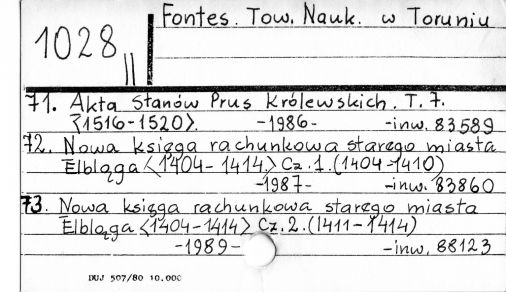 1028 II
Fontes. Tow. Nauk. w Toruniu
71. Akta Stanów Prus Królewskich. T. 7.
<1516-1520>. -1986- -inw. 83589
72. Nowa księga rachunkowa starego miasta
Elbląga <1404-1414.> Cz. 1. (1404-1410)
-1987- -inw. 83860
73. Nowa księga rachunkowa starego miasta
Elbląga <1404-1414> Cz. 2. (1411-1414)
-1989- -inw. 88123
DUJ 507/80 10.000